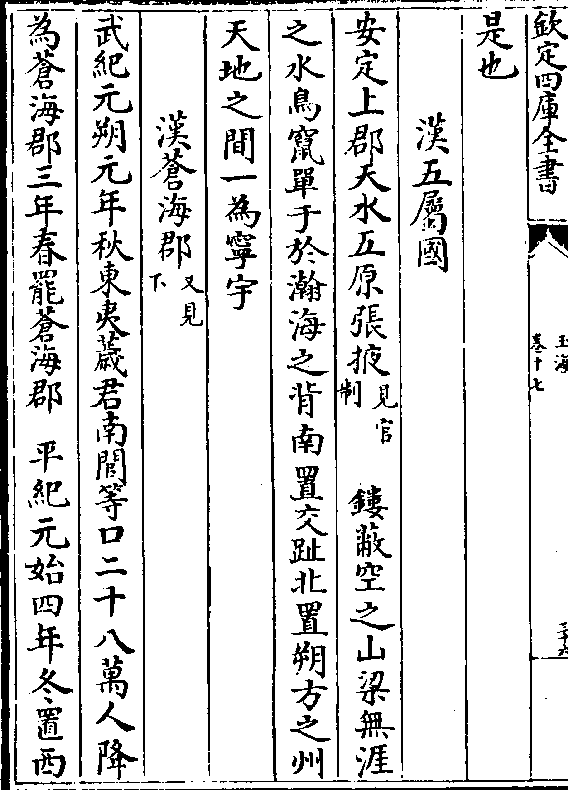 欽定四庫全書
玉海
卷十七
是也
漢五屬國
安定上郡天水五原張掖見官制 鏤蔽空之山梁無涯
之水鳥竄單于於瀚海之背南置交趾北置朔方之州
天地之間一為寧宇
漢蒼海郡又見下
武紀元朔元年秋東夷薉君南閭等口二十八萬人降
為蒼海郡三年春罷蒼海郡 平紀元始四年冬置西